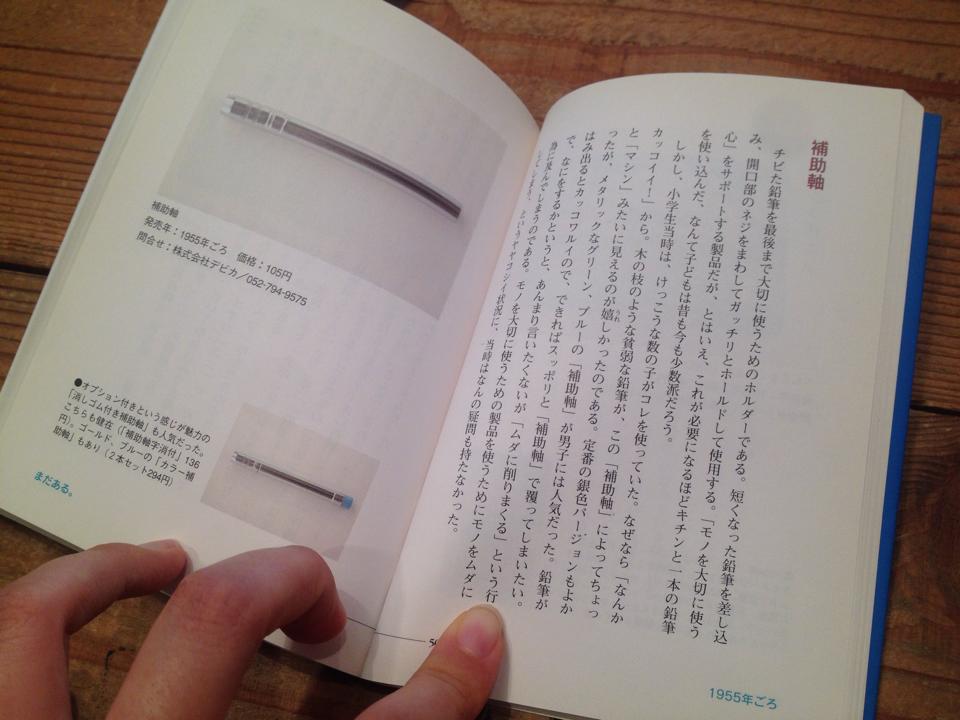 補助軸
チビた鉛筆を最後まで大切に使うためのホルダーである。短くなった鉛筆を差し込
み、開口部のネジをまわしてガッチリとホールドして使用する。「モノを大切に使う
心」をサポートする製品だが、とはいえ、これが必要になるほどキチンと一本の鉛筆
を使い込んだ、なんて子どもは昔も今も少数派だろう。
しかし、小学生当時は、けっこうな数の子がコレを使っていた。なぜなら「なんか
カッコイイ！」から。木の枝のような貧弱な鉛筆が、この「補助軸」によってちょっ
と「マシン」みたいに見えるのが嬉しかったのである。定番の銀色バージョンもよか
ったが、メタリックなグリーン、ブルーの「補助軸」が男子には人気だった。鉛筆が
はみ出るとカッコワルイので、できればスッポリと「補助軸」で覆ってしまいたい。
で、なにをするかというと、あんまり言いたくないが「ムダに削りまくる」という行
為に及んでしまうのである。モノを大切に使うための製品を使うためにモノをムダに
してしまう、というヤヤコシイ状況に、当時はなんの疑問も持たなかった。
1955年ごろ
補助軸
発売年：1955年ごろ　価格：105円
問合せ：株式会社デビカ／052-794-9575
●オプション付きという感じが魅力の
「消しゴム付き補助軸」も人気だった。
こちらも健在（「補助軸字消付」136
円）。ゴールド、ブルーの「カラー補
助軸」もあり（2本セット294円）
まだある。